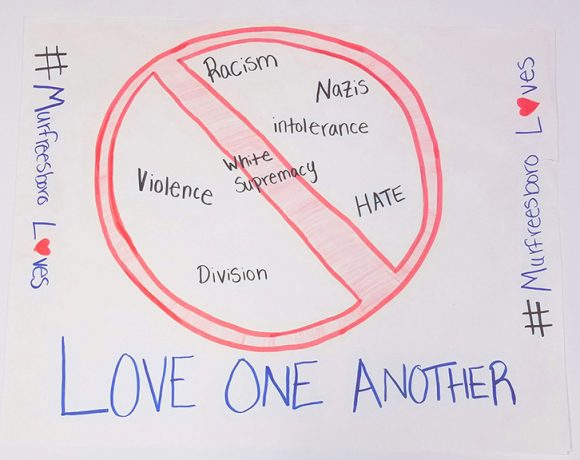 # Murfreesboro L♥ves
Racism
Nazis
intolerance
White
Supremacy
Violence
HATE
Division
# Murfreesboro L♥ves
LOVE ONE ANOTHER